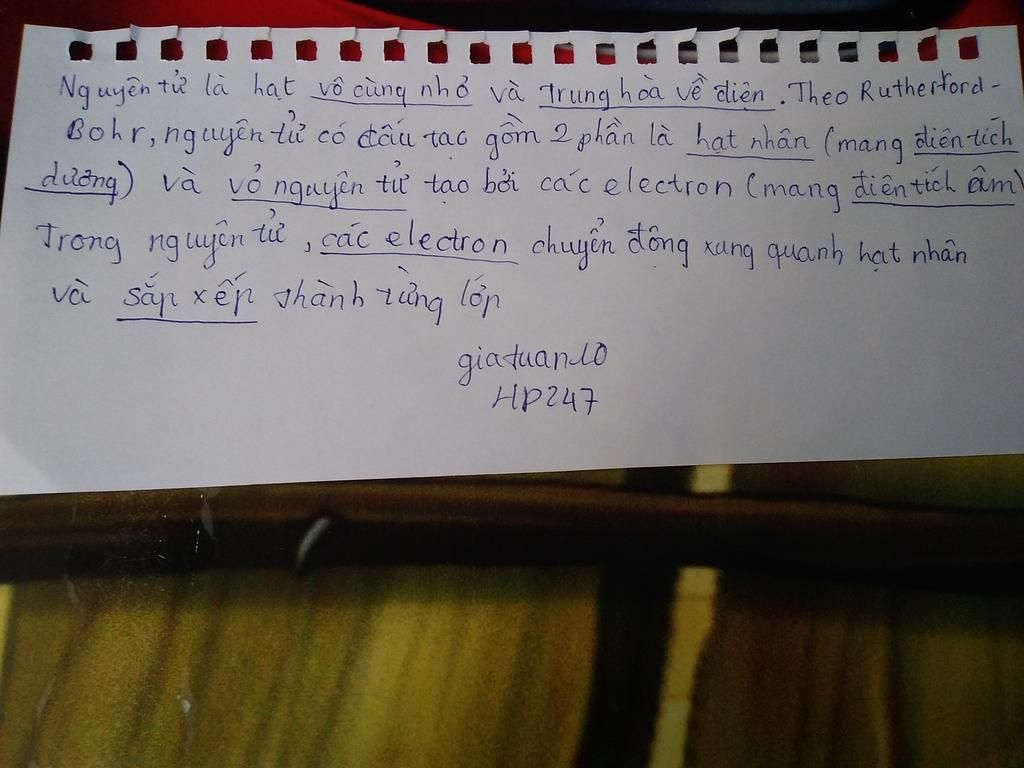 Nguyên tử là hạt vô cùng nhỏ và trung hoà về điện. Theo Rutherford-
Bohr, nguyên tử có cấu tạo gồm 2 phần là hạt nhân (mang điện tích
dương) và vỏ nguyên tử tạo bởi các electron (mang điện tích âm)
Trong nguyên tử, các electron chuyển động xung quanh hạt nhân
và sắp xếp thành từng lớp
giatuan10
HP247